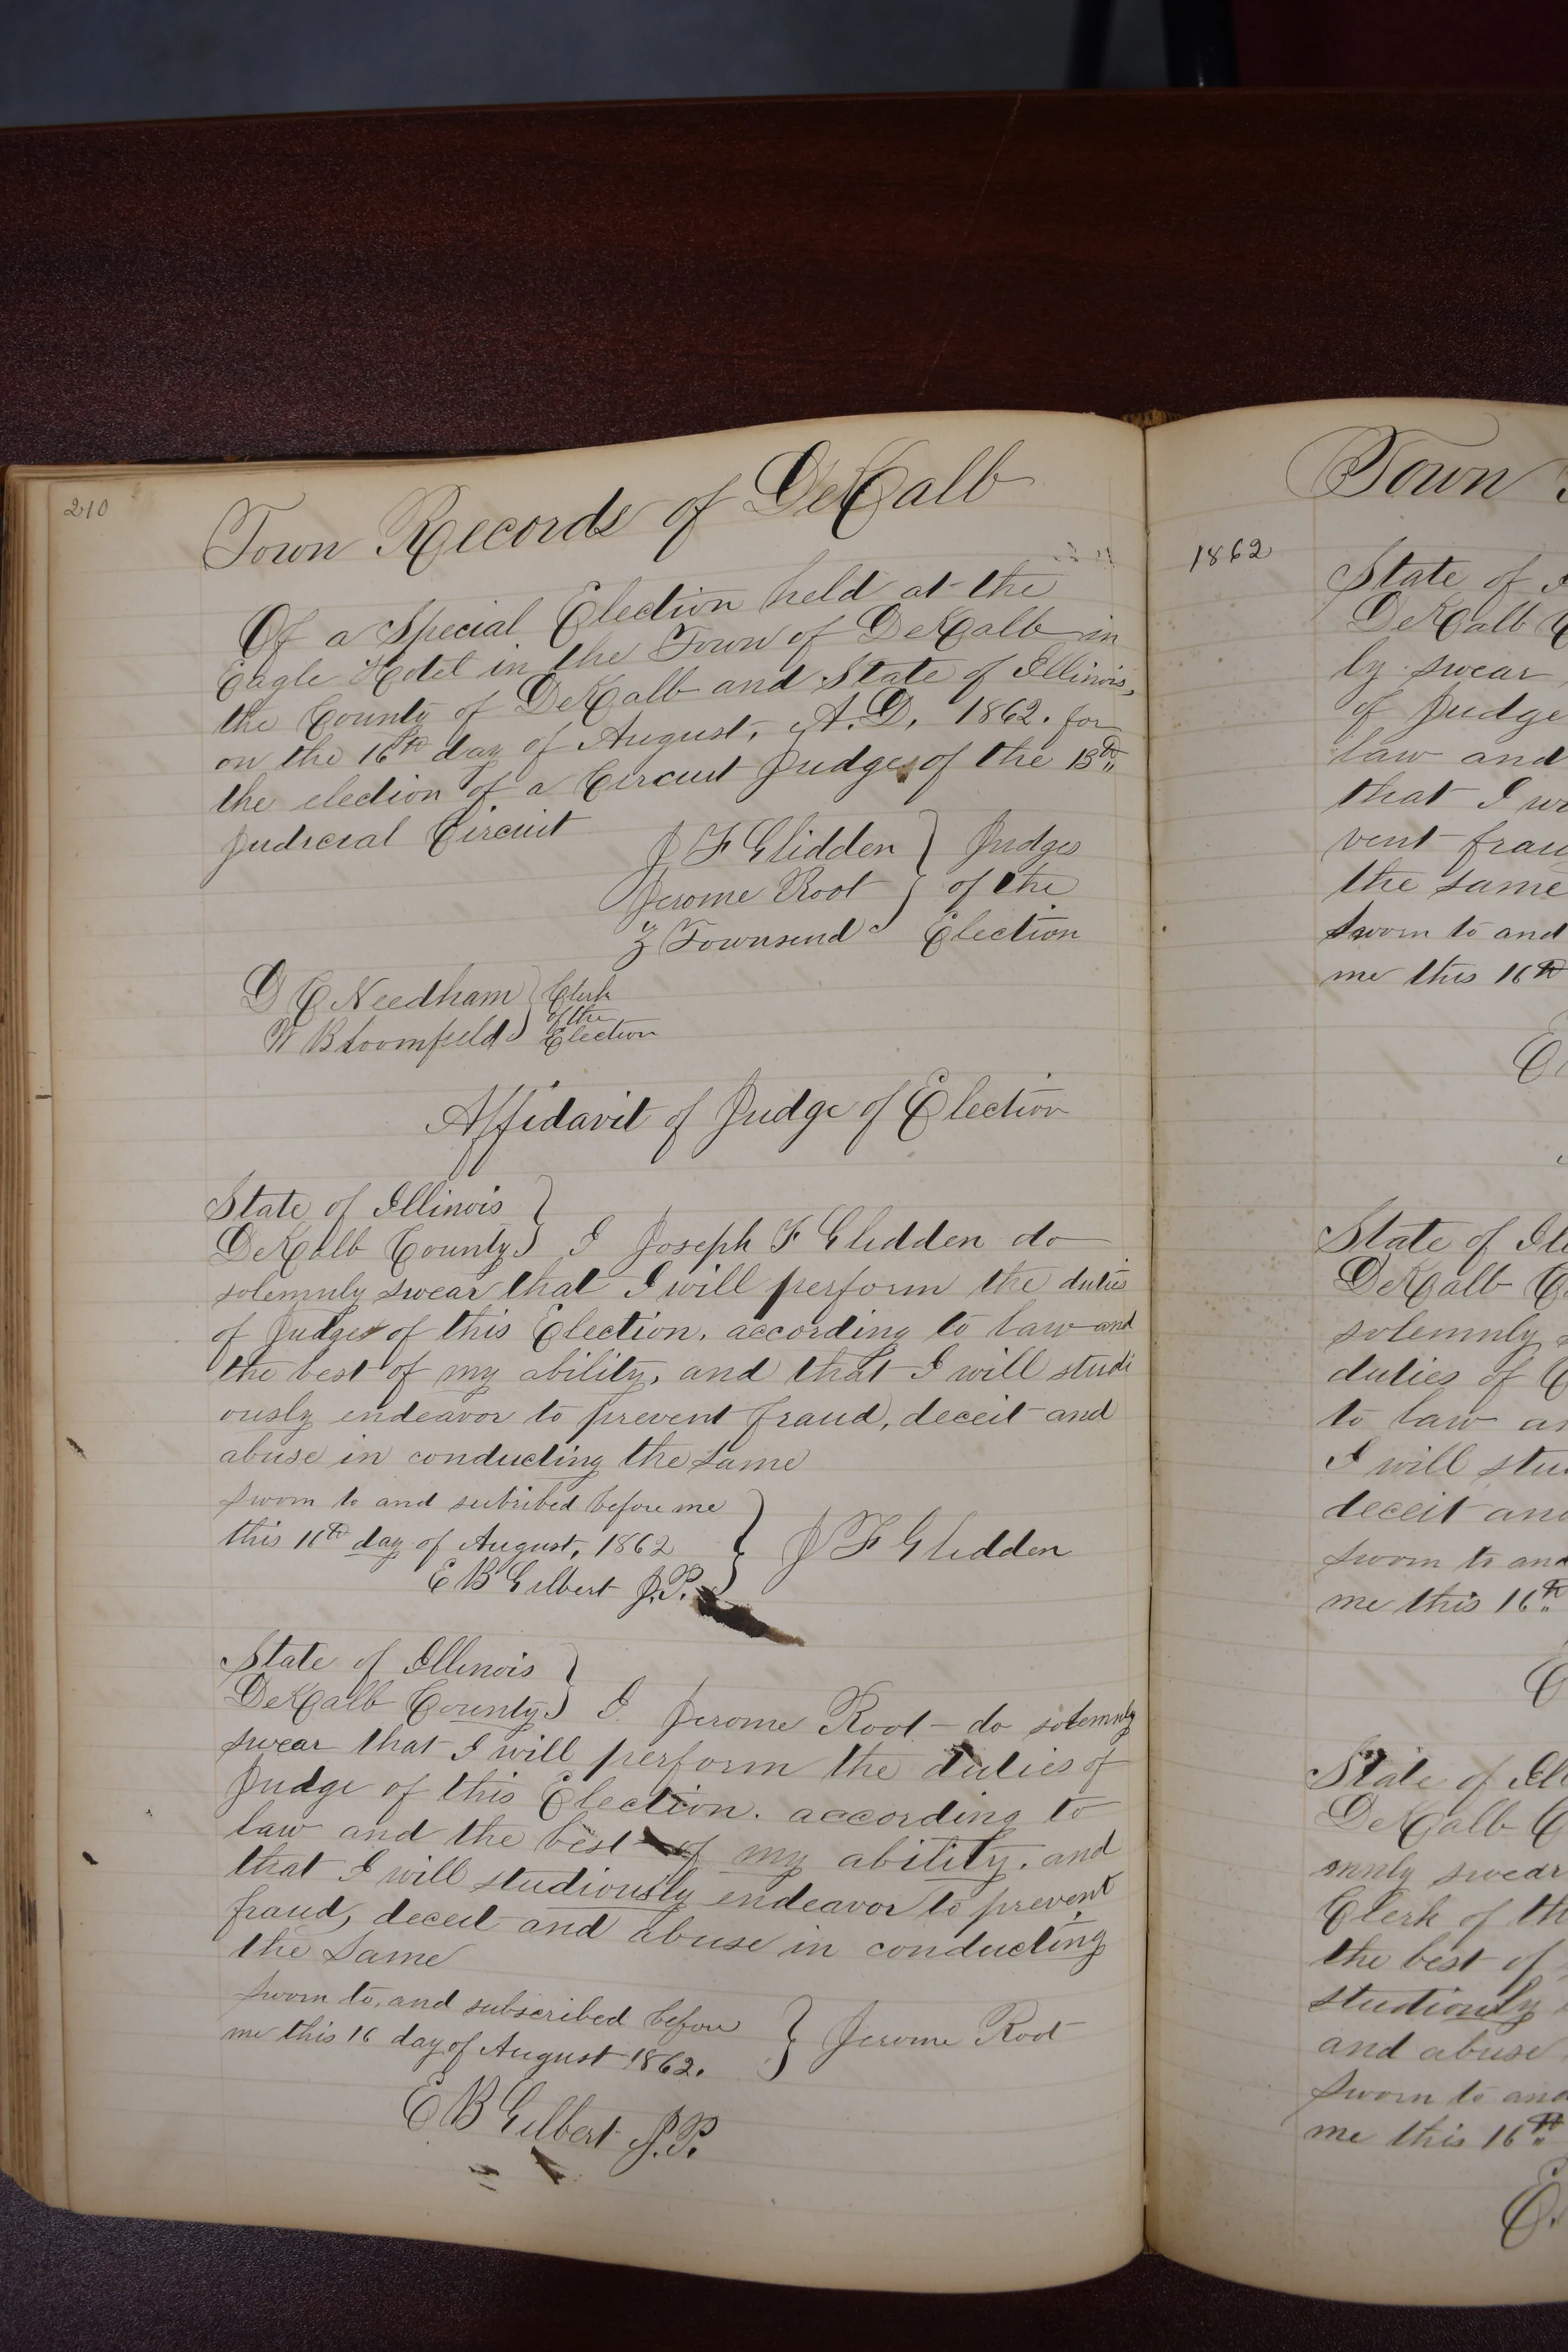 210
Town Records of DeKalb
Of a Special Election held at the
Eagle Hotel in the Town of DeKalb in
the County of DeKalb and State of Illinois,
on the 16th day of August, A.D. 1862. for
the election of a Circuit Judge of the 13th
Judicial Circuit
J F Glidden } Judges
Jerome Root } of the
Z Townsend } Election
D C Needham } Clerk
of the
W Bloomfield } Election
Affidavit of Judge of Election
State of Illinois }
DeKalb County } I Joseph F Glidden do
solemnly swear that I will perform the duties
of Judge of this Election, according to law and
the best of my ability, and that I will studi
ously endeavor to prevent fraud, deceit and
abuse in conducting the same
Sworn to and subribed before me
this 16th day of August, 1862 } J F Glidden
E B Gilbert J.P.
State of Illinois }
DeKalb County } I Jerome Root - do solemnly
swear that I will perform the duties of
Judge of this Election. according to
law and the best of my ability, and
that I will studiously endeavor to prevent
fraud, deceit and abuse in conducting
the same
Sworn to, and subscribed before
me this 16 day of August 1862. } Jerome Root
E B Gilbert J.P.
Town
1862
State of
DeKalb
ly swear
of Judge
law and
that I
vent
the same
Sworn to and
me this 16th
State of
DeKalb
solemnly
duties of
to law
I will
deceit and
Sworn to and
me this 16th
State of
DeKalb
mnly swear
Clerk of
the best of
studiously
and abuse
Sworn to and
me this 16th